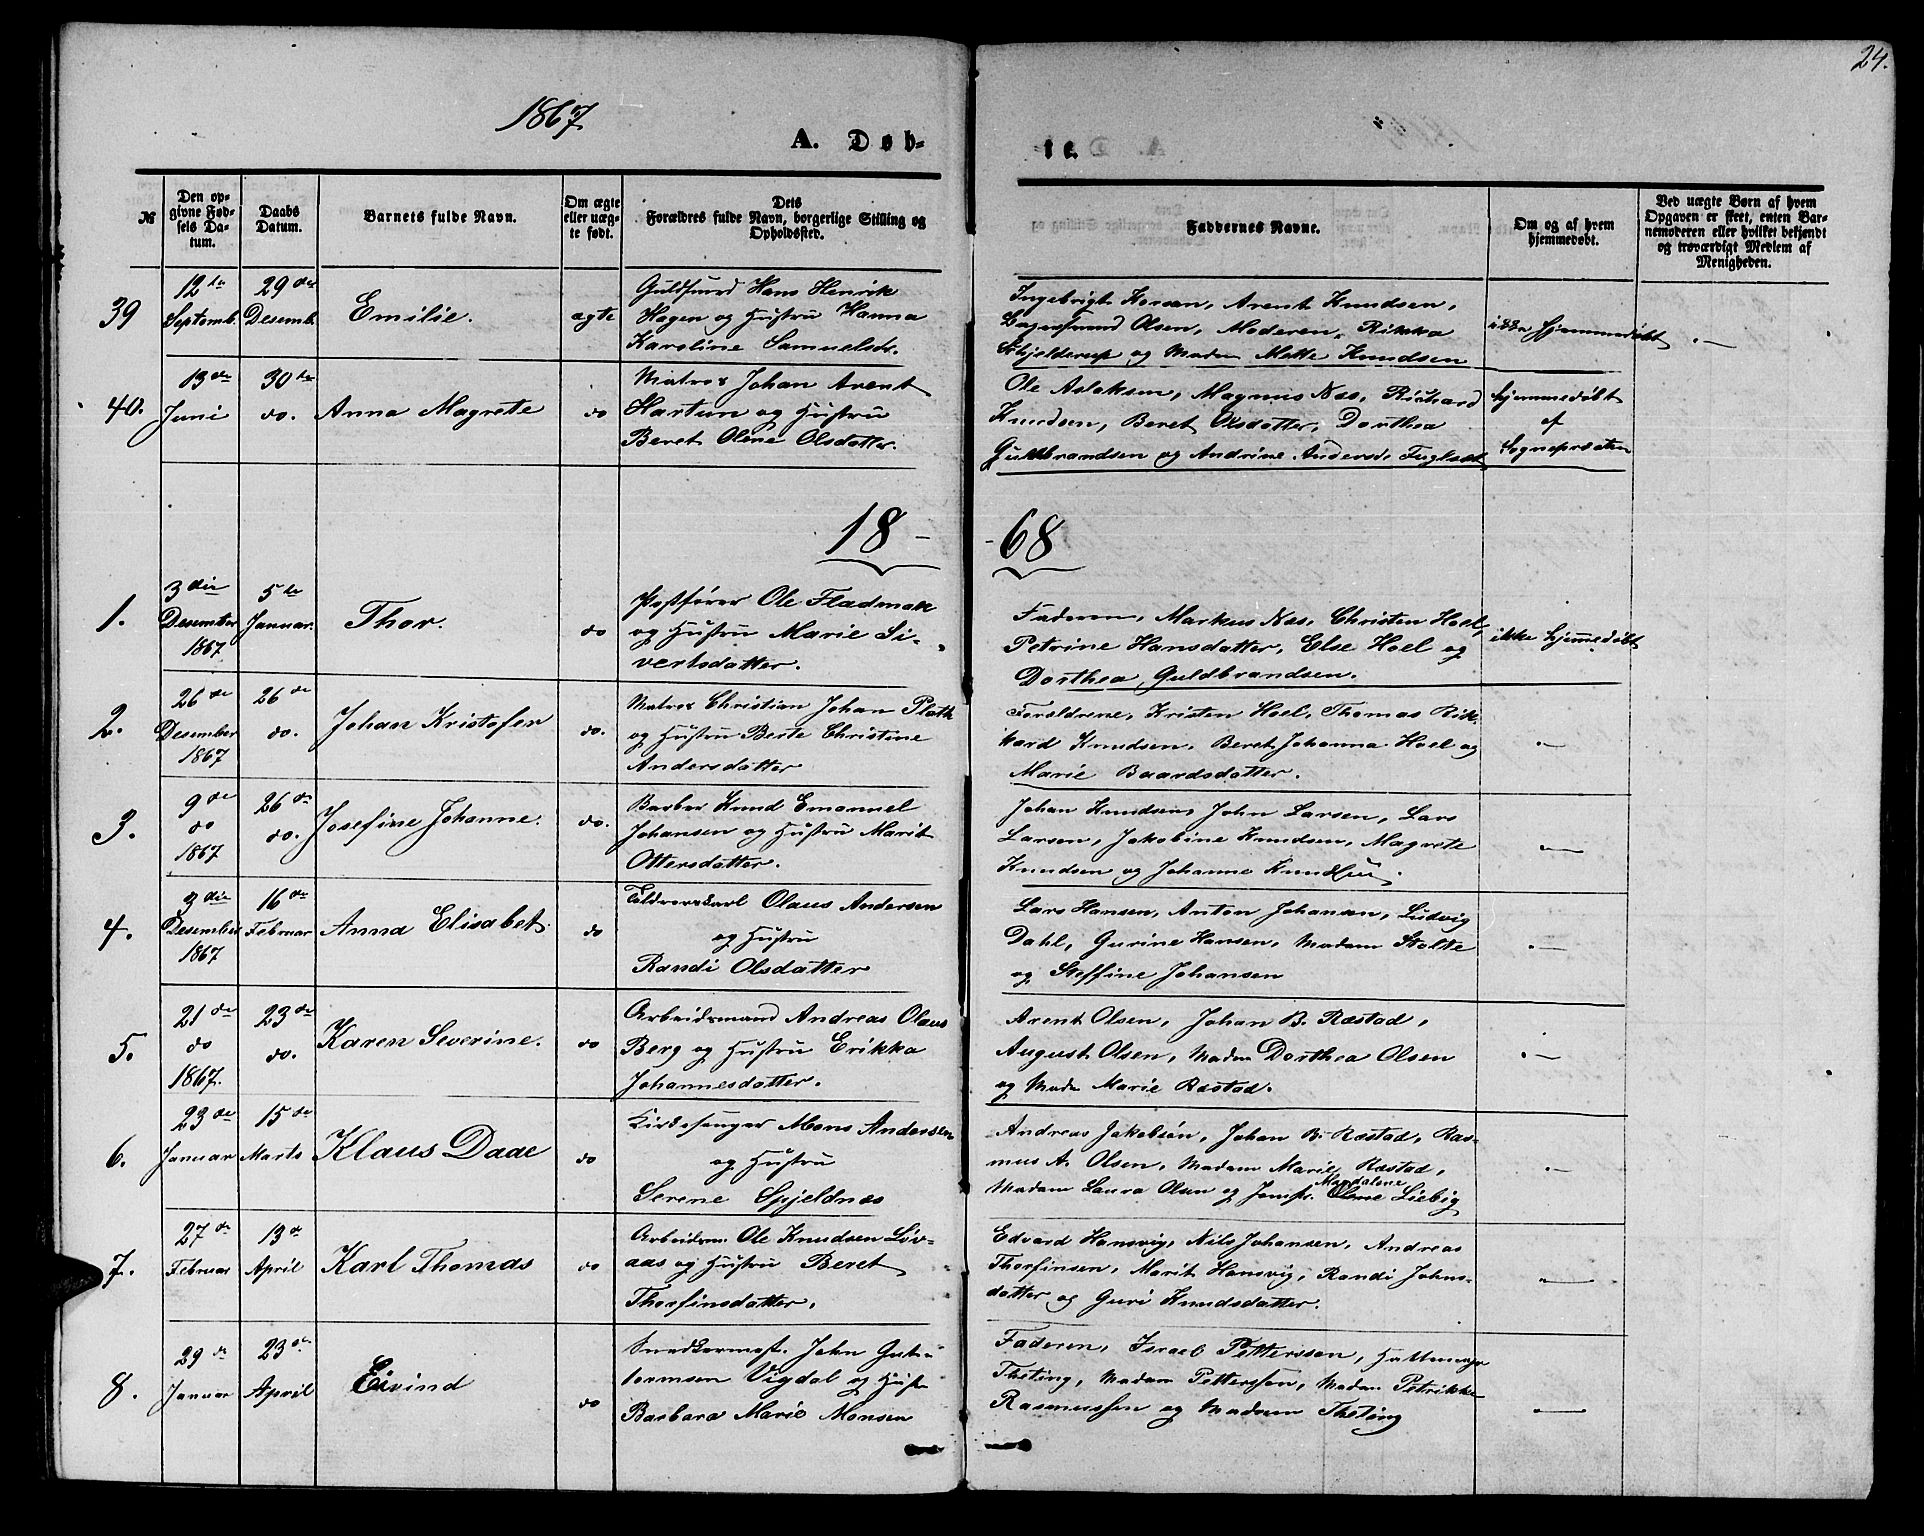 24.
1867
A. Døb-
te.
№
Den op-
givne Fød-
sels Da-
tum.
Daabs
Datum.
Barnets fulde Navn.
Om ægte
eller uæg-
te født.
Dets
Forældres fulde Navn, borgerlige Stilling og
Opholdssted.
Faddernes Navne.
Om og af hvem
hjemmedøbt.
Ved uægte Børn af hvem
Opgaven er skeet, enten Bar-
nemoderen eller hvilket bekjendt
og troværdigt Medlem af
Menigheden.
39
12te
Septemb.
29de
Desemb.
Emilie.
ægte
Guldsmed Hans Henrik
Hagen og Hustru Hanna
Karoline Samuelsdr.
Ingebrigt Arent Knudsen,
Olsen, Moderen, Rikka
Schjelderup og Madm Mette Knudsen
ikke hjemmedøbt
. —
40.
13de
Juni
30te
do.
Anna Magrete
do
Matros Johan Arent
Hartun og Hustru
Beret Oline Olsdatter.
Ole Aslaksen, Magnus Næs, Richard
Knudsen, Beret Olsdatter, Dorthea
Guldbrandsen og Andrine Andersd. Fuglset
hjemmedøbt
af
Sognepræsten
18 - - 68
1.
3die
Desember
1867
5te
Januar.
Thor.
do
Postfører Ole Fladmark
og Hustru Marie Si-
vertsdatter.
Faderen, Markus Næs, Christen Hoel,
Petrine Hansdatter, Else Hoel og
Dorthea Guldbrandsen.
ikke hjemmedøbt
2.
26de
Desember
1867
26de
do.
Johan Kristofer
do.
Matros Christian Johan Plath
og Hustru Berte Christine
Andersdatter
Forældrene, Kristen Hoel, Thomas Rik-
kard Knudsen, Beret Johanna Hoel og
Marie Baardsdatter.
. —
3.
9de
do
1867
26de
do.
Josefine Johanne.
do.
Barber Knud Emanuel
Johansen og Hustru Marit
Ottersdatter.
Johan Knudsen, John Larsen, Lars
Larsen, Jakobine Knudsen, Magrete
Knudsen og Johanne Knudsen.
. —
4.
3die
Desember
1867
16de
Februar
Anna Elisabet.
do
Olaus Andersen
og Hustru
Randi Olsdatter
Lars Hansen, Anton Johansen, Ludvig
Dahl, Gurine Hansen, Madam Stolte
og Steffine Johansen
. —
5.
21de
do
1867.
23de
do.
Karen Severine.
do
Arbeidsmand Andreas Olaus
Berg og Hustru Erikka
Johannesdatter.
Arent Olsen, Johan B. Ræstad,
August Olsen, Madm Dorthea Olsen
og Madm Marie Ræstad.
. —
6.
23de
Januar
15de
Marts
Klaus Daae
do
Kirkesanger Mons Andersen
og Hustru
Serene Spjeldnæs
Andreas Jakobsön, Johan B. Ræstad, Ras-
mus A. Olsen, Madam Marie Ræstad,
Magdalene
Madam Laura Olsen og Jomfr. Oline Liebig
. —
7.
27de
Februar
13de
April
Karl Thomas
do
Arbeidsm. Ole Knudsen Löv-
aas og Hustru Beret
Thorfinsdatter.
Edvard Hansvig, Nils Johansen, Andreas
Thorfinsen, Marit Hansvig, Randi Johns-
datter og Guri Knudsdatter.
. —
8.
29de
Januar
23de
April
Eivind
do
Snedkermest. John Gut-
tormsen Vigdal og Hust.
Barbara Marie Monsen
Faderen, Israel Pettersson, Hattemager
Theting, Madam Petterson, Madm Petrikke
Rasmussen og Madam Theting
. —